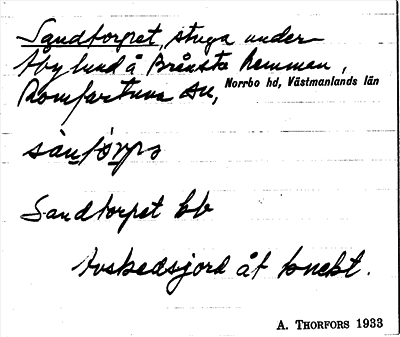 Sandtorpet, stuga under
Åbylund å Brånsta hemman,
Romfartuna sn, Norrbo hd, Västmanlands län
sàntórpə
Sandtorpet bb
Avskedsjord åt knekt.
A. THORFORS 1933